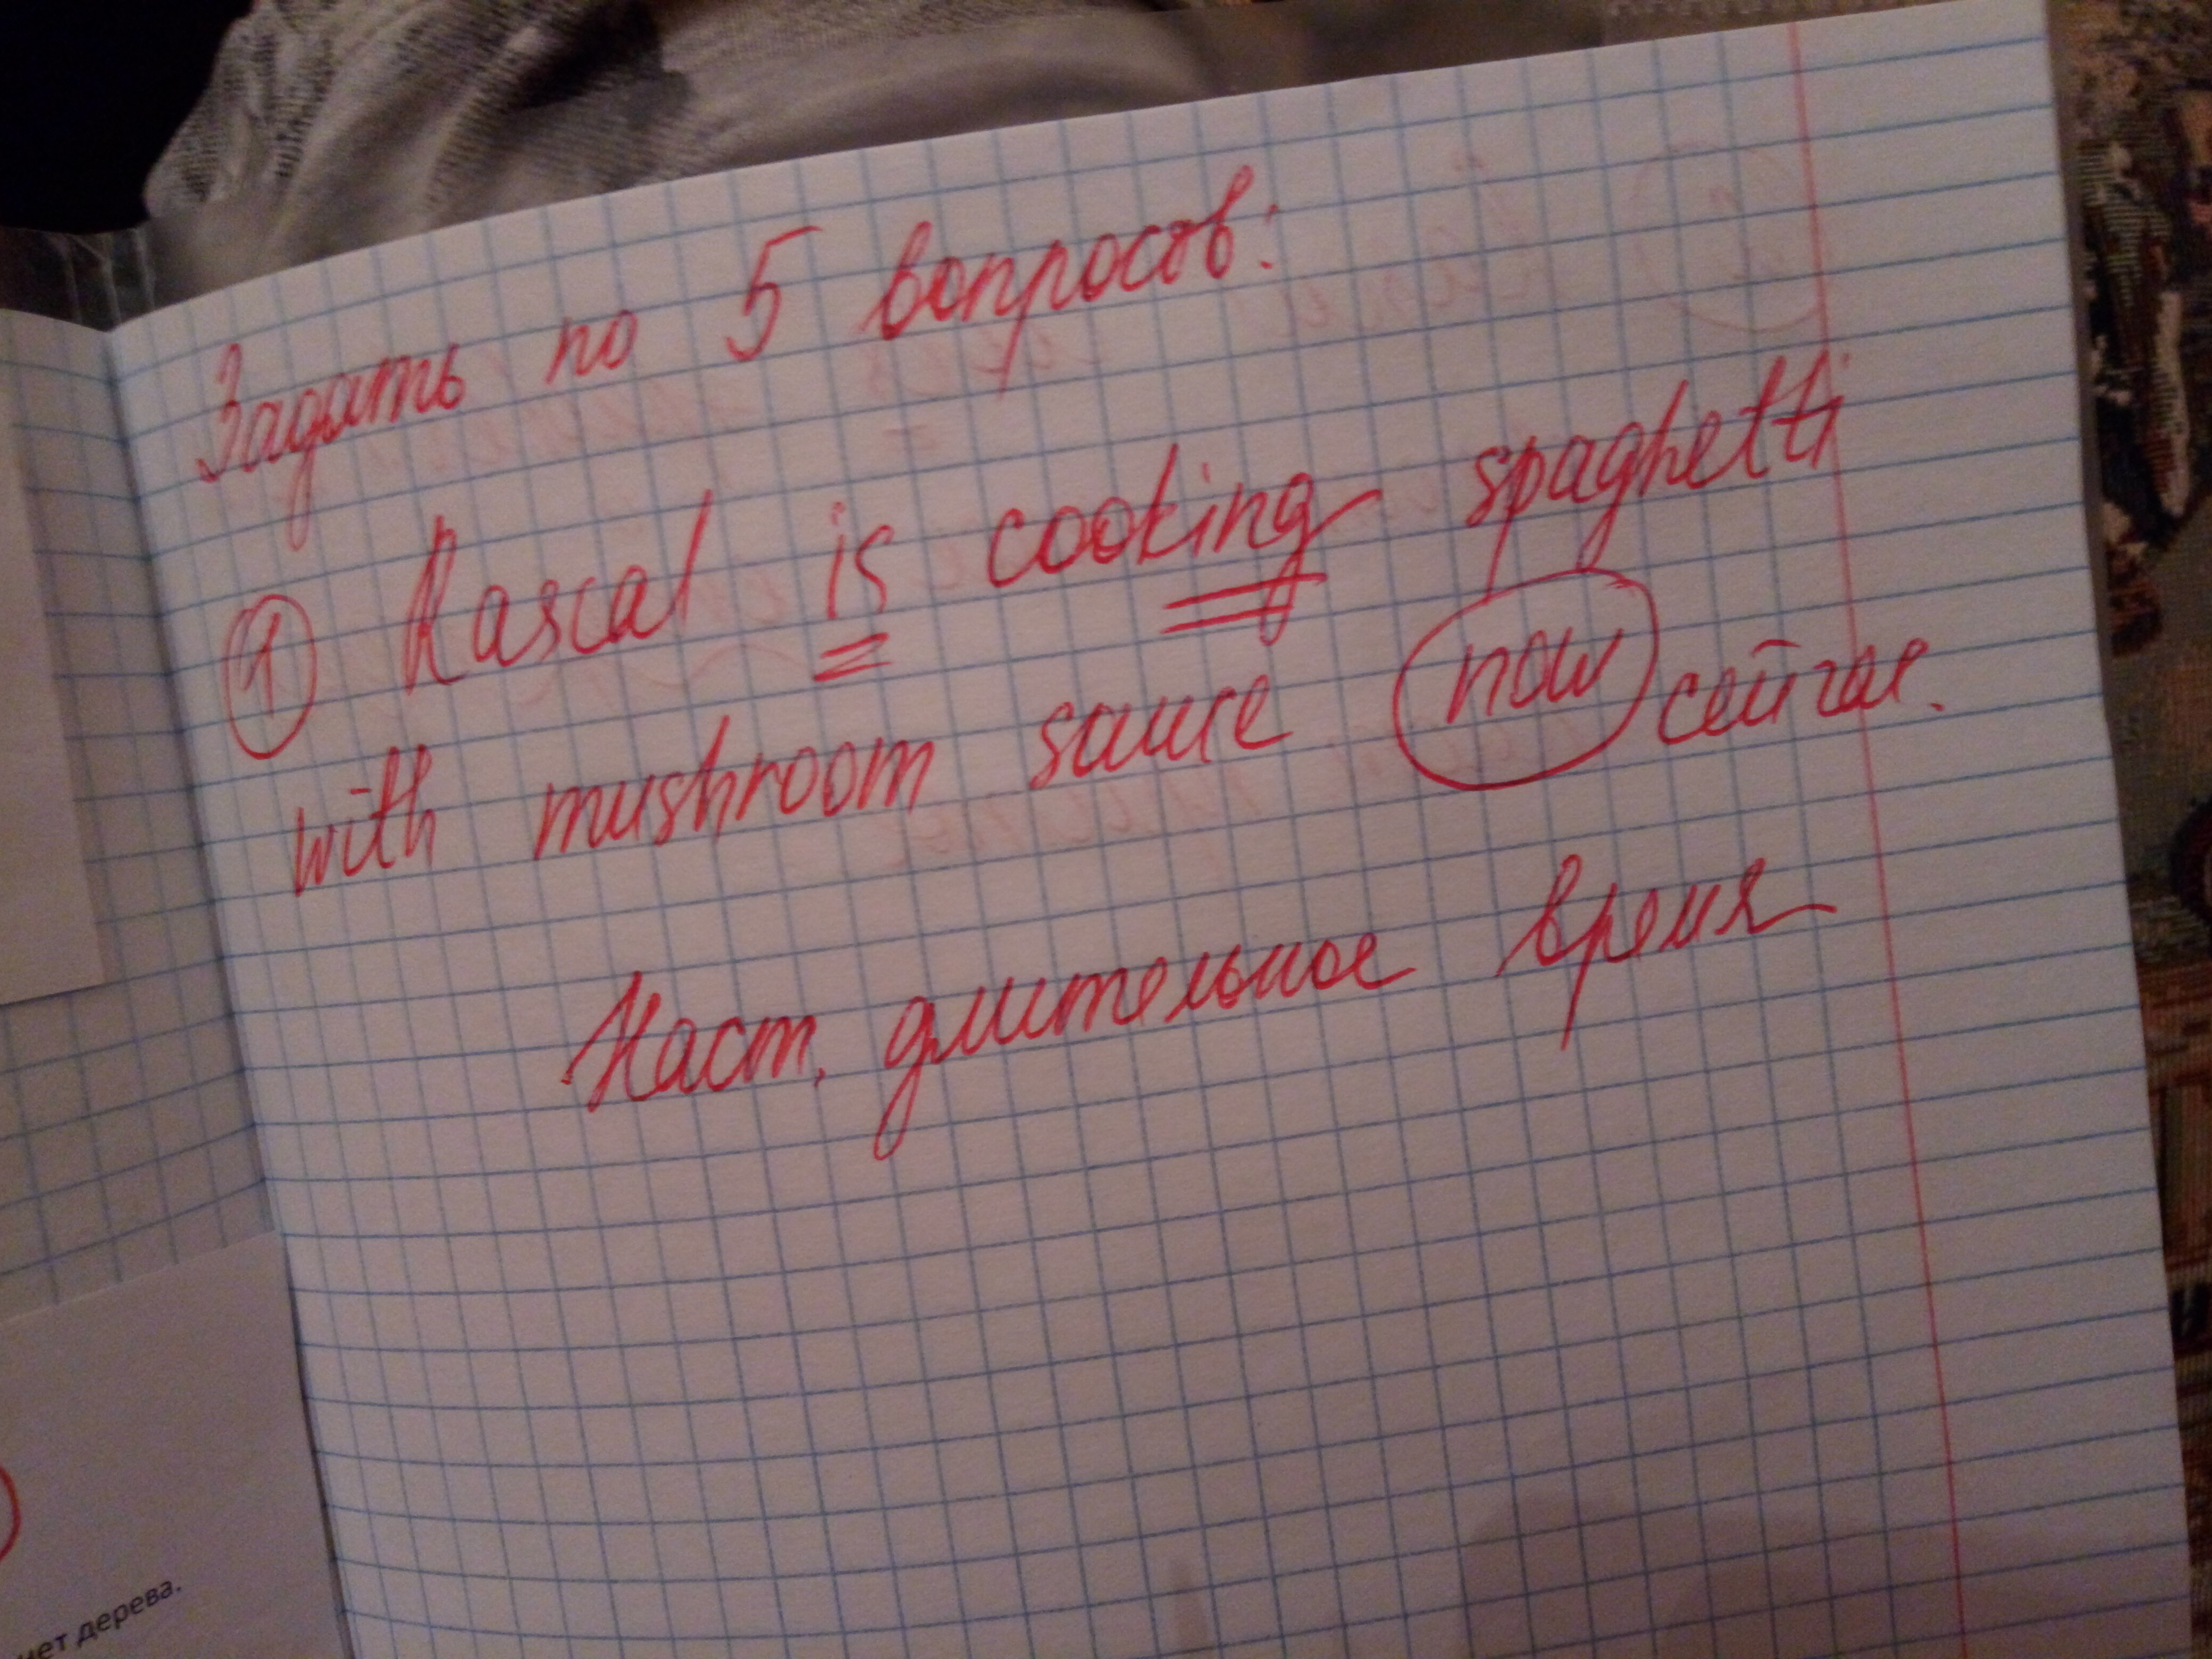 Задать по 5 вопросов:
1 Rascal is cooking spaghetti
with mushroom sauce now сейчас.
Наст. длительное время
нет дерева.